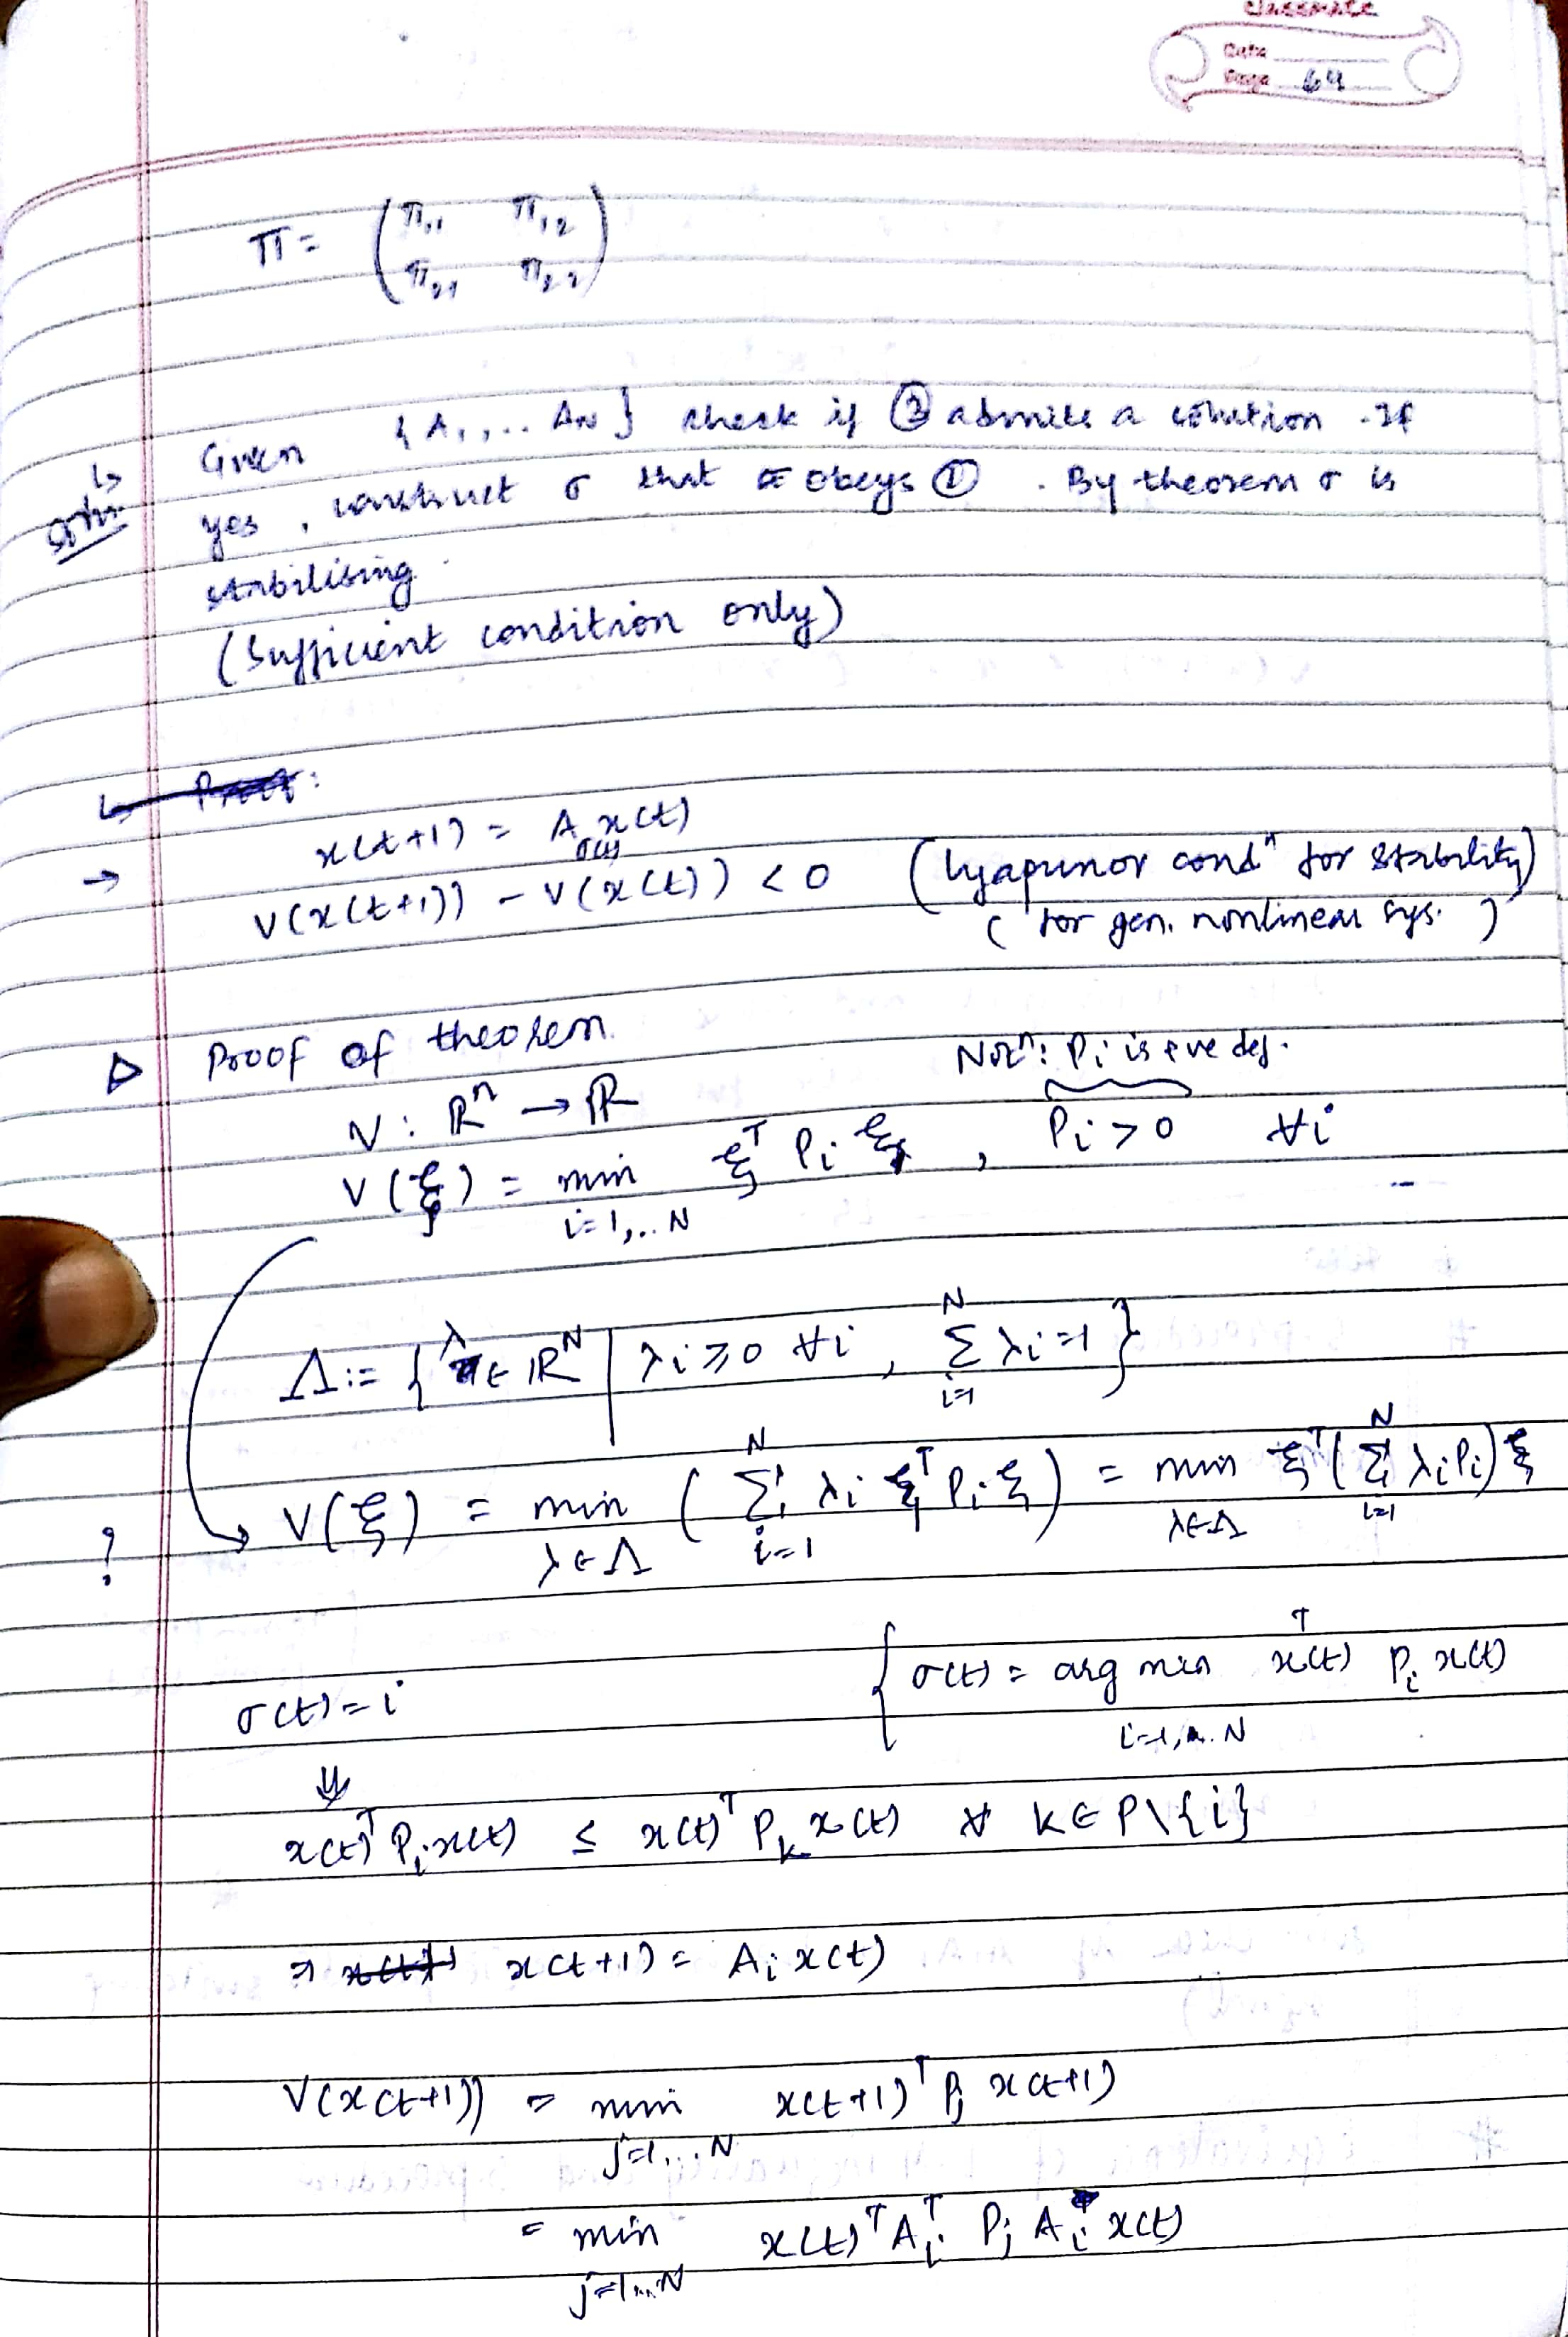 classmate
Date
Page 64
Π = ( Π₁₁ Π₁₂
Π₂₁ Π₂₂ )
↳ Given {A₁,... A_N} check if ② admits a solution. If
soln yes, construct σ that obeys ① . By theorem σ is
stabilising.
(Sufficient condition only)
x(t+1) = A_σ(t) x(t)
→ V(x(t+1)) - V(x(t)) < 0 (Lyapunov condⁿ for stability)
( for gen. nonlinear sys. )
▷ Proof of theorem
Notⁿ: Pᵢ is +ve def.
V : ℝⁿ → ℝ
V(ξ) = min ξᵀ Pᵢ ξ , Pᵢ > 0 ∀i
i=1,.. N
Λ := { λ ∈ ℝᴺ | λᵢ ≥ 0 ∀i , Σ_{i=1}^{N} λᵢ = 1 }
? V(ξ) = min_{λ∈Λ} ( Σ_{i=1}^{N} λᵢ ξᵀ Pᵢ ξ ) = min_{λ∈Λ} ξᵀ ( Σ_{i=1}^{N} λᵢ Pᵢ ) ξ
σ(t) = i { σ(t) = arg min x(t)ᵀ Pᵢ x(t)
i=1,... N
⇓
x(t)ᵀ Pᵢ x(t) ≤ x(t)ᵀ P_k x(t) ∀ k ∈ P\{i}
⇒ x(t+1) = Aᵢ x(t)
V(x(t+1)) = min x(t+1)ᵀ Pⱼ x(t+1)
j=1... N
= min x(t)ᵀ Aᵢᵀ Pⱼ Aᵢ x(t)
j=1...N